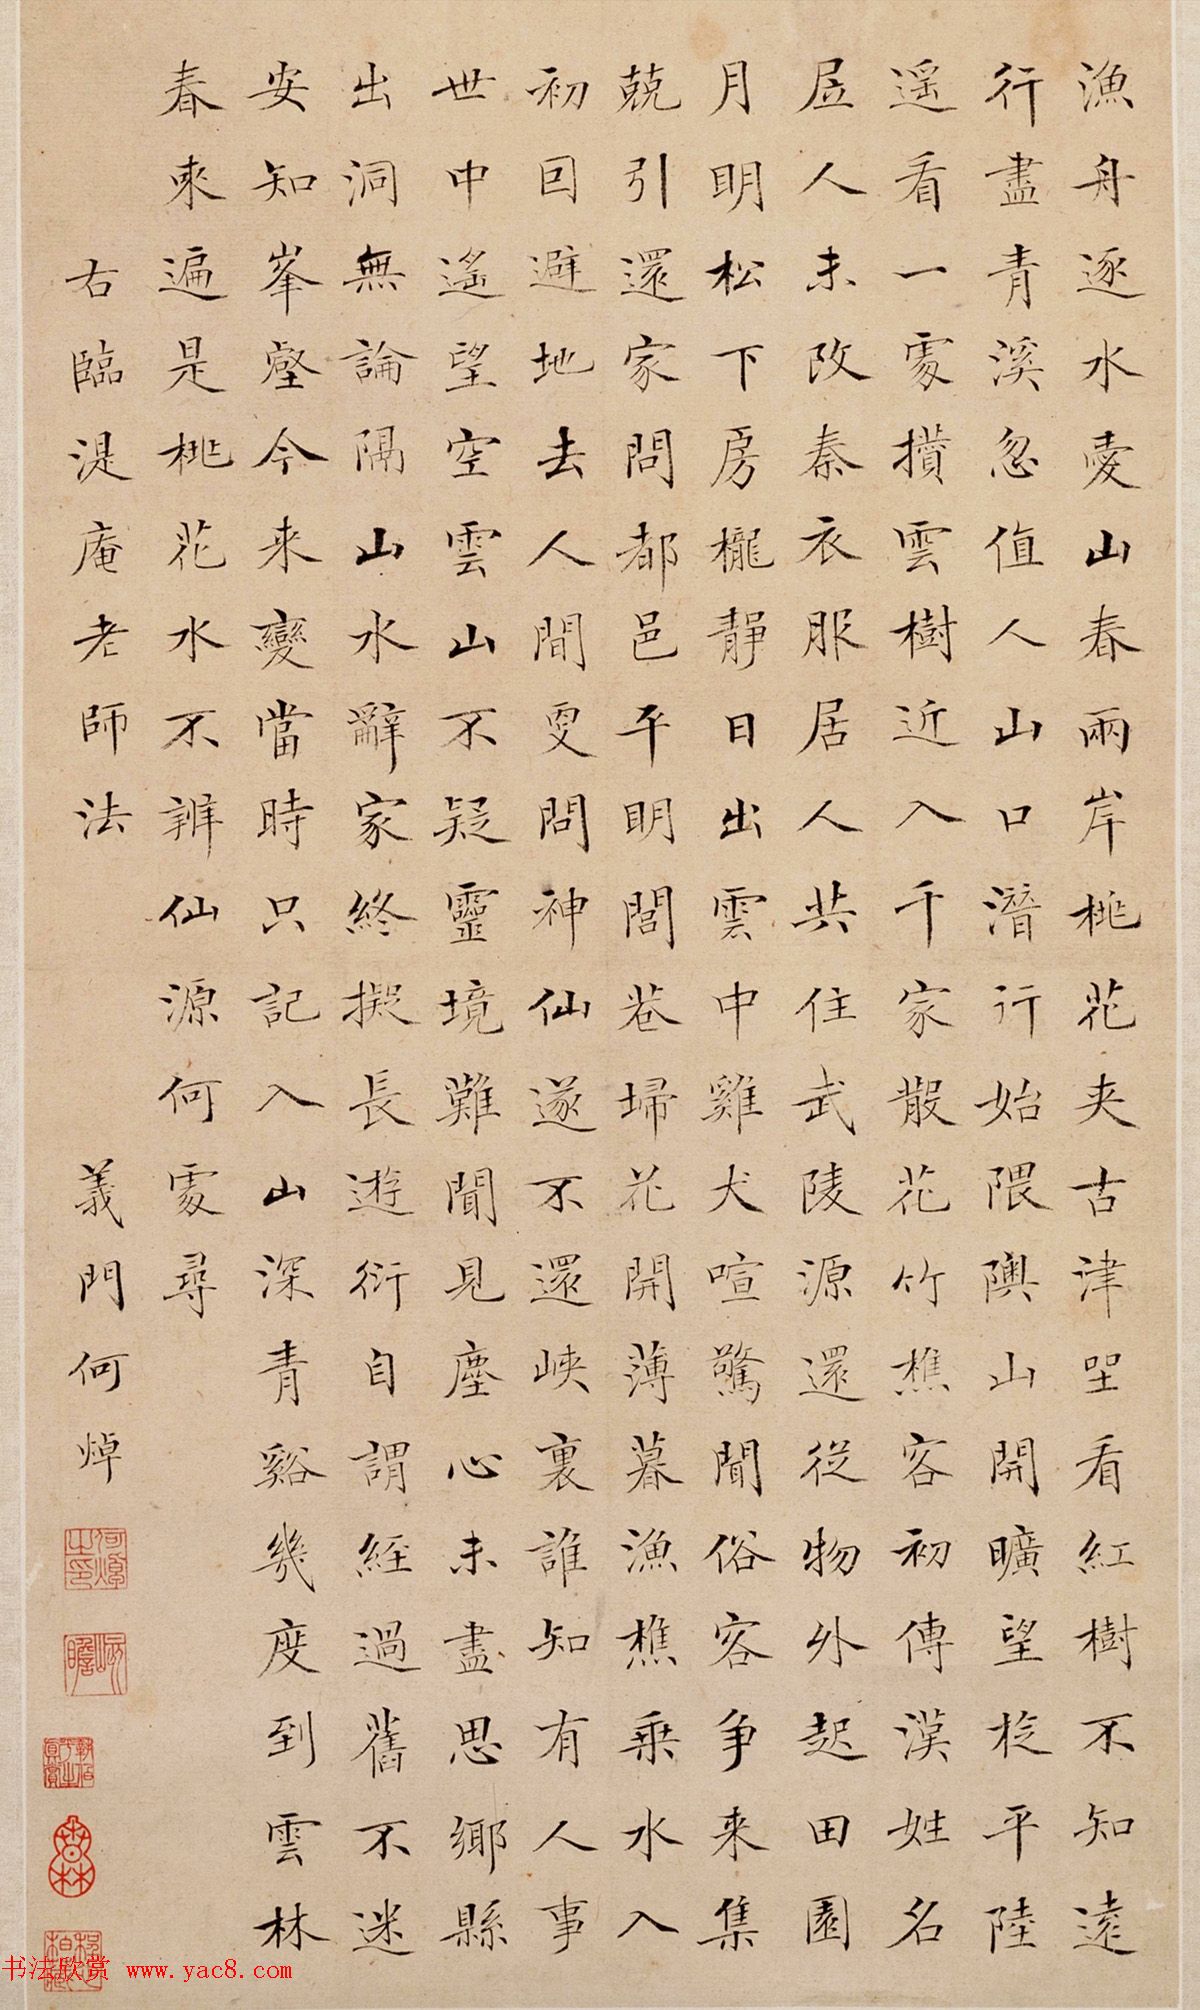 漁舟逐水愛山春兩岸桃花夾古津坐看紅樹不知遠
行盡青溪忽值人山口潛行始隈隩山開曠望旋平陸
遥看一處攢雲樹近入千家散花竹樵客初傳漢姓名
居人未改秦衣服居人共住武陵源還從物外起田園
月明松下房櫳靜日出雲中雞犬喧驚聞俗客争来集
兢引還家問都邑平明閭巷埽花開薄暮漁樵乘水入
初回避地去人間更問神仙遂不還峽裏誰知有人事
世中遙望空雲山不疑靈境難聞見塵心未盡思鄉縣
出洞無論隔山水辭家終擬長遊衍自謂經過舊不迷
安知峯壑今来變當時只記入山深青谿幾度到雲林
春來遍是桃花水不辨仙源何處尋
右臨湜庵老師法 義門何焯
书法欣赏 www.yac8.com